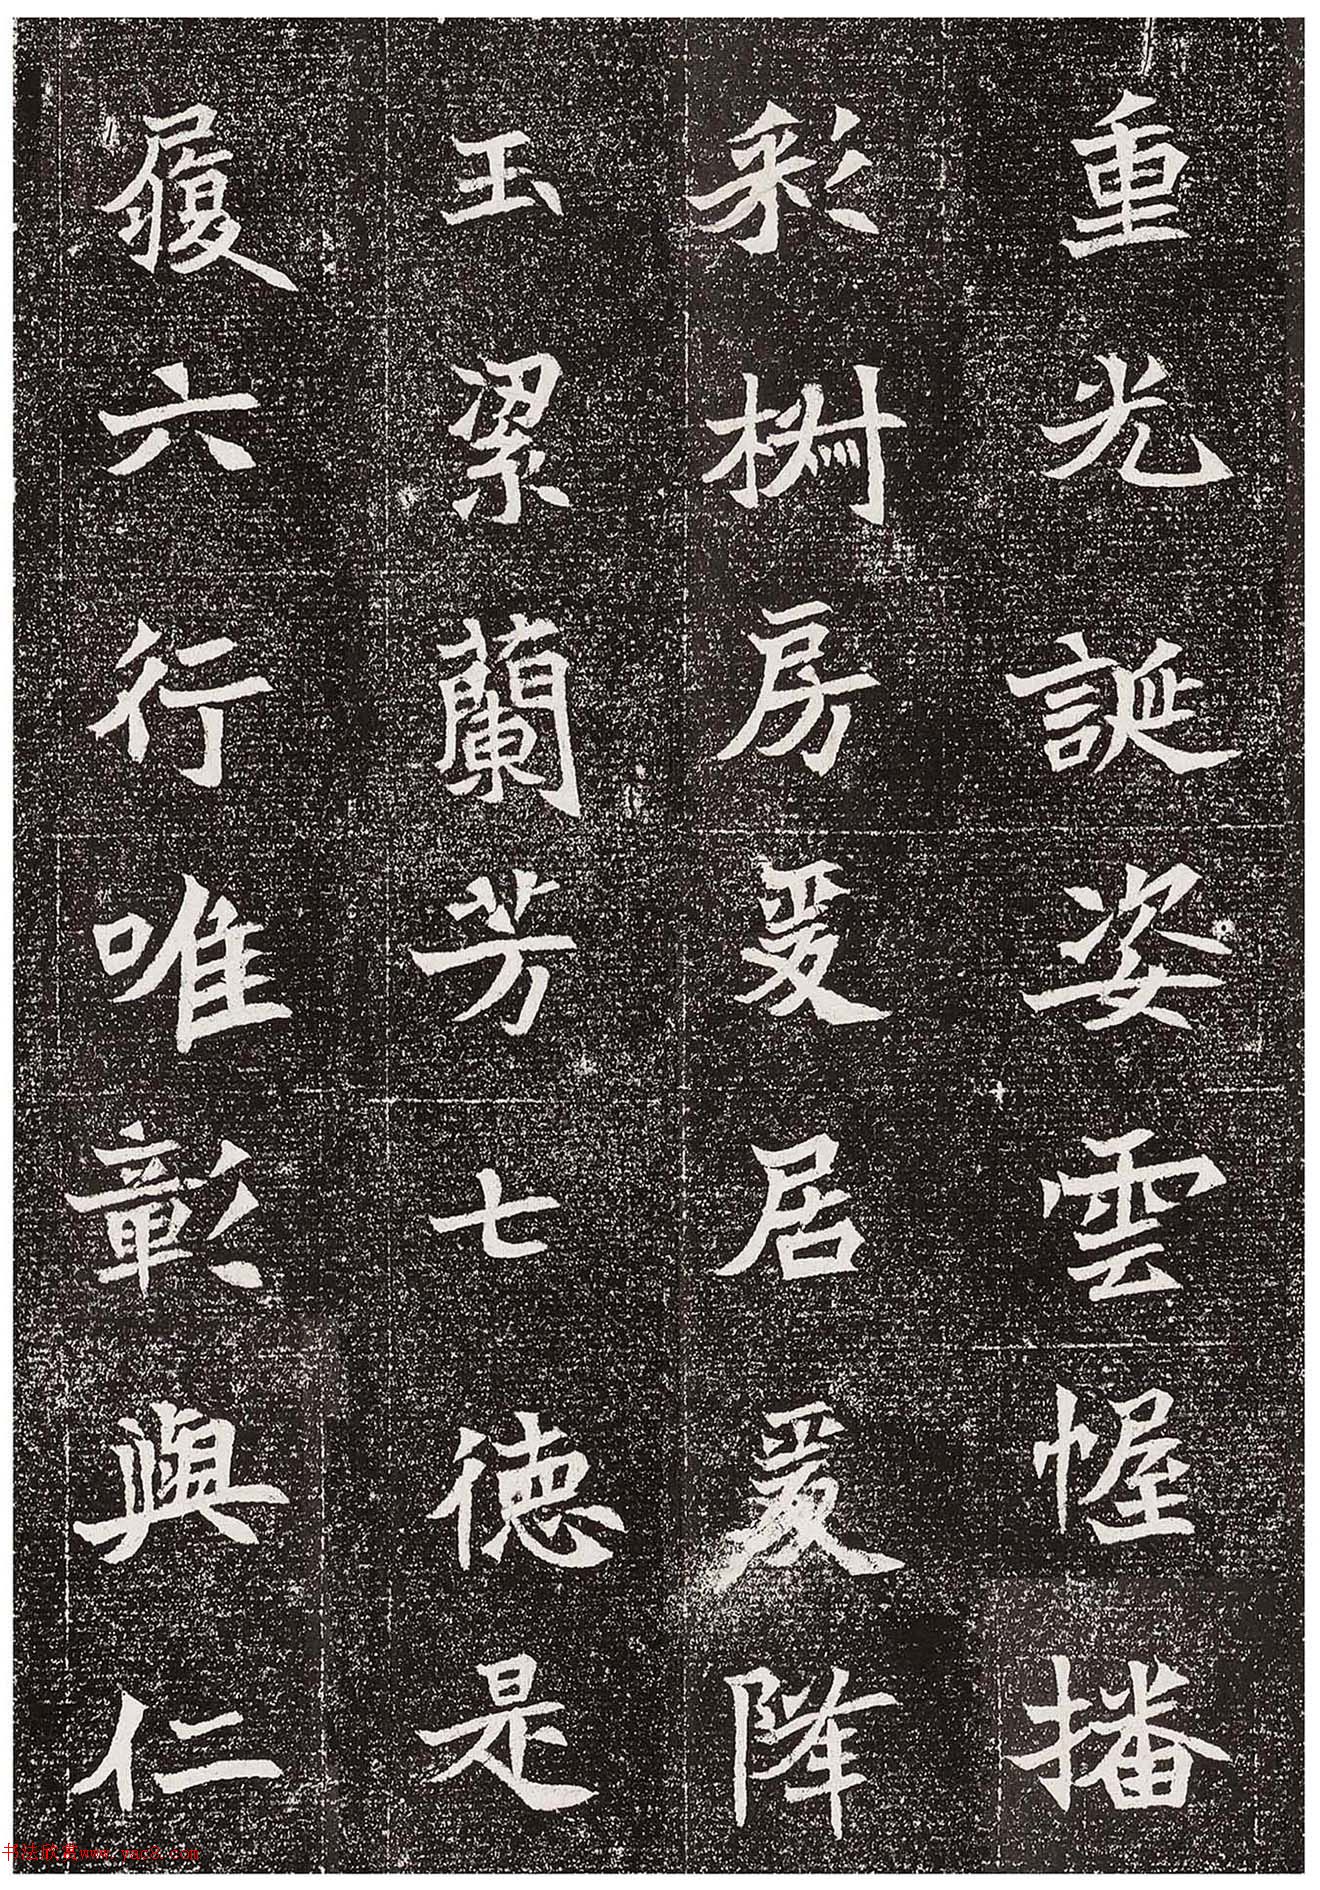 重光誕姿雲幄播
彩椒房爰居爰降
玉潔蘭芳七德是
履六行唯彰與仁
书法欣赏www.yac8.com